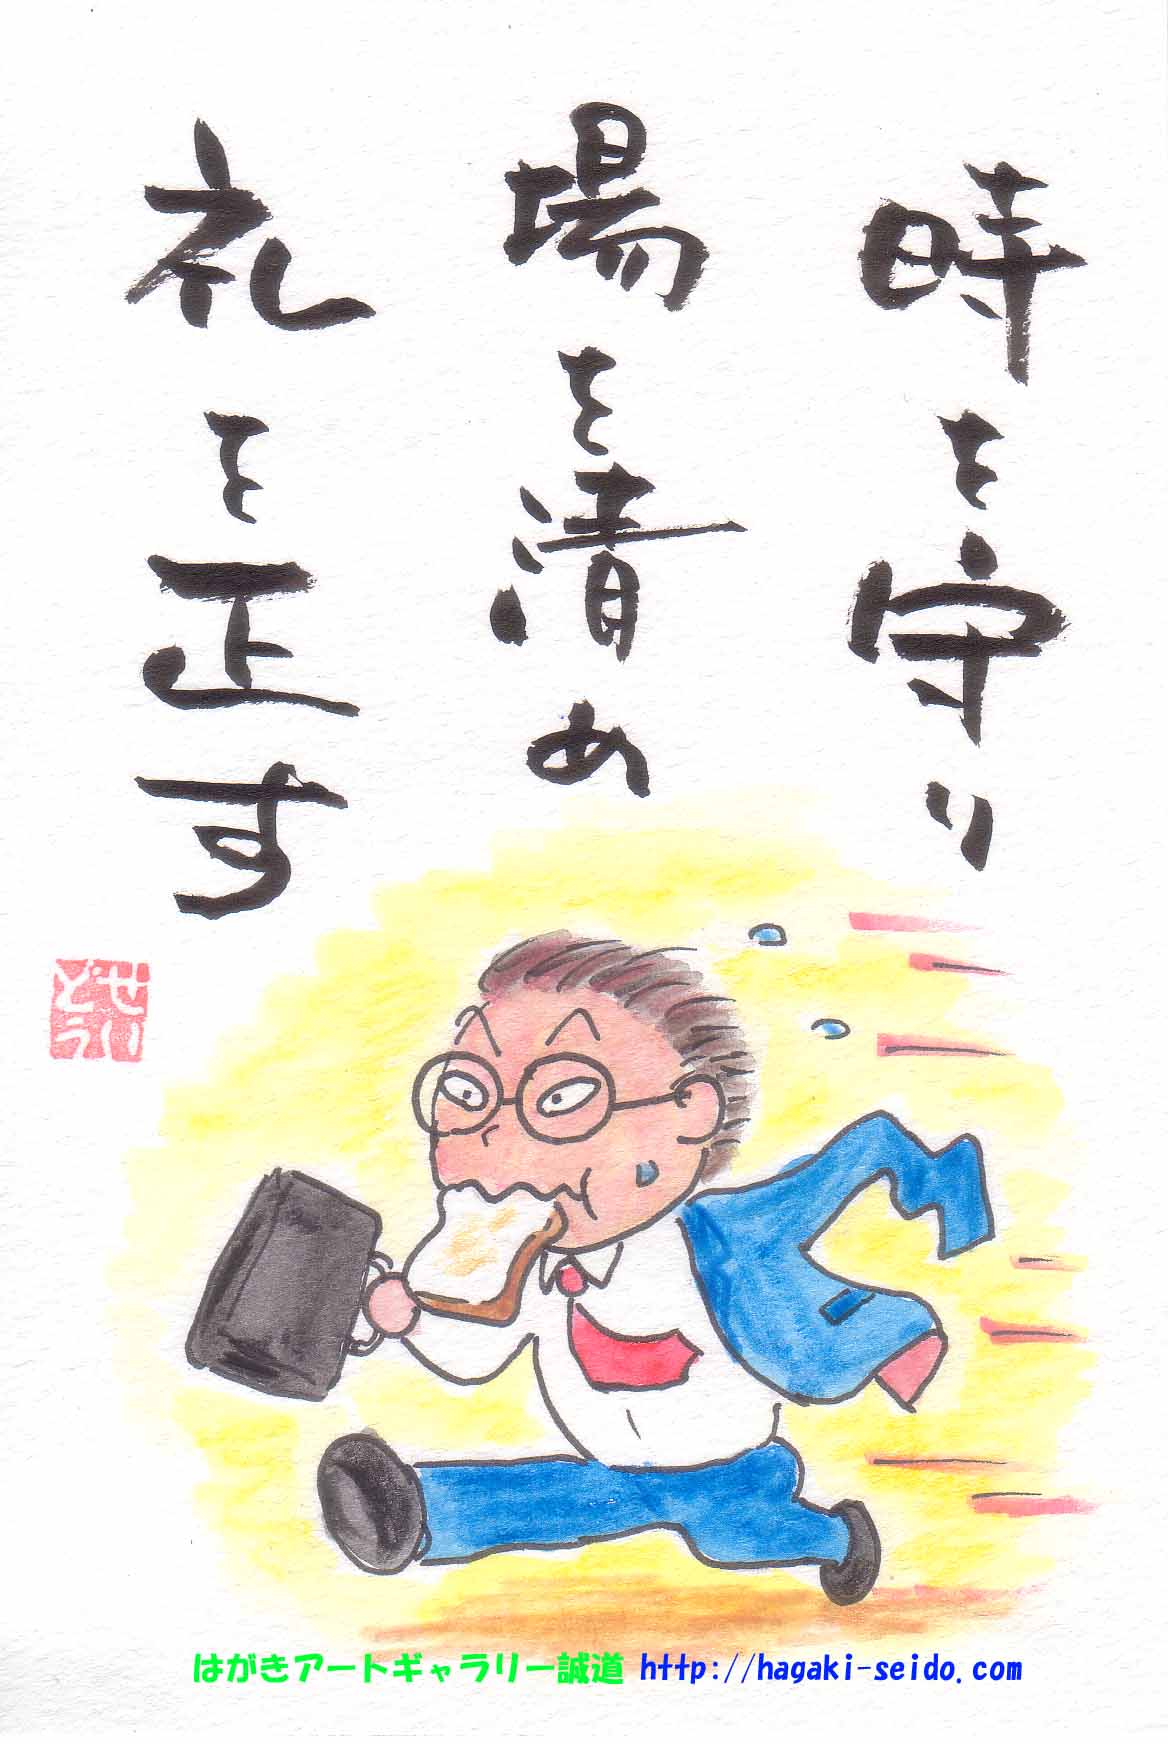 時を守り
場を清め
礼を正す
せいどう
はがきアートギャラリー誠道 http://hagaki-seido.com